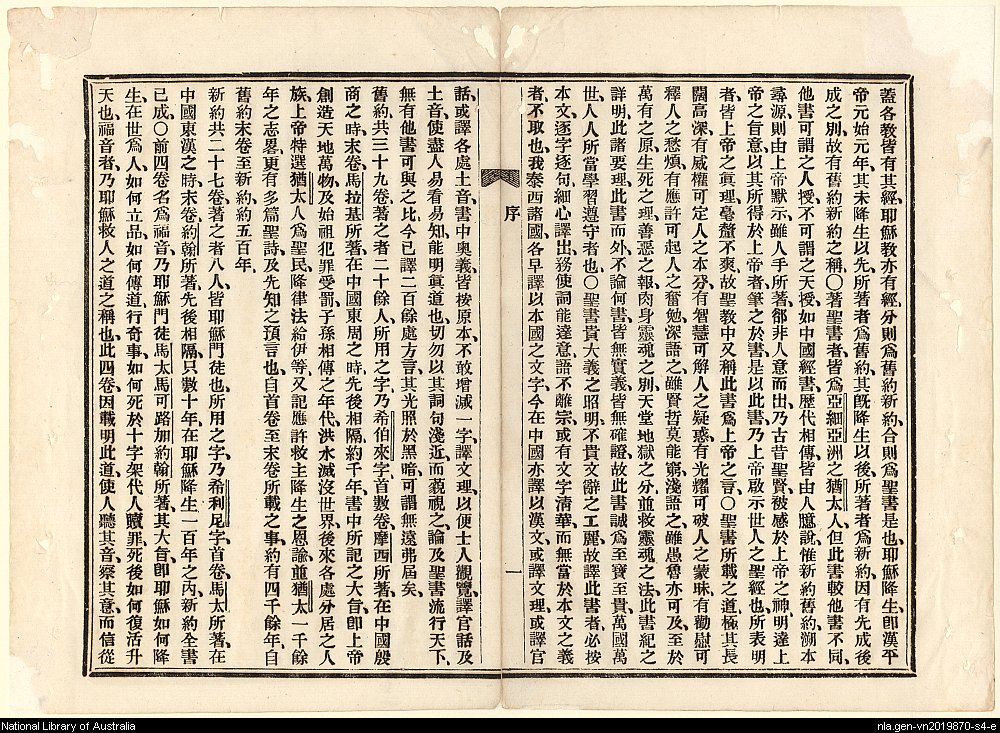 蓋各教皆有其經、耶穌教亦有經、分則爲舊約新約、合則爲聖書是也、耶穌降生、卽漢平
帝元始元年、其未降生以先所著者、爲舊約、其旣降生以後所著者、爲新約、因有先成後
成之別、故有舊約新約之稱、〇著聖書者、皆爲亞細亞洲之猶太人、但此書較他書不同、
他書可謂之人授、不可謂之天授、如中國經書、歷代相傳、皆由人臆說、惟新約舊約、溯本
尋源、則由上帝默示、雖人手所著、郤非人意而出、乃古昔聖賢、被感於上帝之神、明達上
帝之旨意、以其所得於上帝者、筆之於書、是以此書、乃上帝啟示世人之聖經也、所表明
者、皆上帝之眞理、毫釐不爽、故聖教中又稱此書爲上帝之言、〇聖書所載之道、極其長
闊高深、有威權可定人之本分、有智慧可解人之疑惑、有光耀可破人之蒙昧、有勸慰可
釋人之愁煩、有應許可起人之奮勉、深語之、雖賢哲莫能窮、淺語之、雖愚魯亦可及、至於
萬有之原、生死之理、善惡之報、肉身靈魂之別、天堂地獄之分、並救靈魂之法、此書紀之
詳明、此諸要理、此書而外、不論何書、皆無實義、皆無確證、故此書誠爲至寶至貴、萬國萬
世、人人所當學習遵守者也、〇聖書貴大義之昭明、不貴文辭之工麗、故譯此書者、必按
本文逐字逐句、細心譯出、務使詞能達意、語不離宗、或有文字淸華、而無當於本文之義
者、不取也、我泰西諸國、各早譯以本國之文字、今在中國、亦譯以漢文、或譯文理、或譯官
序
一
話、或譯各處土音、書中奧義、皆按原本、不敢增減一字、譯文理、以便士人觀覽、譯官話及
土音、使盡人易看易知、能明眞道也、切勿以其詞句淺近而藐視之、論及聖書流行天下、
無有他書可與之比、今已譯二百餘處方言、其光照於黑暗、可謂無遠弗屆矣、
舊約共三十九卷、著之者二十餘人、所用之字、乃希伯來字、首數卷摩西所著、在中國殷
商之時、末卷馬拉基所著、在中國東周之時、先後相隔約千年、書中所記之大旨、卽上帝
創造天地萬物、及始祖犯罪受罰、子孫相傳之年代、洪水滅沒世界、後來各處分居之人
族、上帝特選猶太人爲聖民、降律法給伊等、又記應許救主降生之恩諭、並猶太一千餘
年之志畧、更有多篇聖詩、及先知之預言也、自首卷至末卷所載之事、約有四千餘年、自
舊約末卷至新約、約五百年、
新約共二十七卷、著之者八人、皆耶穌門徒也、所用之字、乃希利尼字、首卷馬太所著、在
中國東漢之時、末卷約翰所著、先後相隔只數十年、在耶穌降生一百年之內、新約全書
已成、〇前四卷名爲福音、乃耶穌門徒馬太馬可路加約翰所著、其大旨、卽耶穌如何降
生、在世爲人、如何立品、如何傳道、行奇事、如何死於十字架、代人贖罪、死後如何復活升
天也、福音者、乃耶穌救人之道之稱也、此四卷、因載明此道、使人聽其音、察其意、而信從
National Library of Australia
nla.gen-vn2019870-s4-e